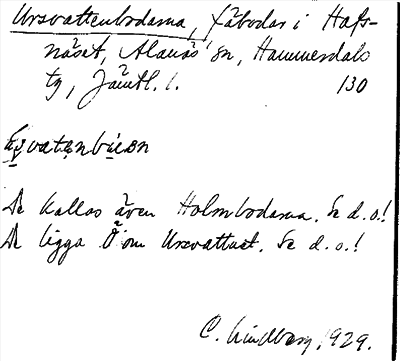 Ursvattenbodarna, fäbodar i Hafs-
näset, Alanäs sn, Hammerdals
tg, Jämtl. l. 130
De kallas även Holmbodarna. Se d.o.!
De ligga Ö om Ursvattnet. Se d.o.!
C. Lindberg, 1929.